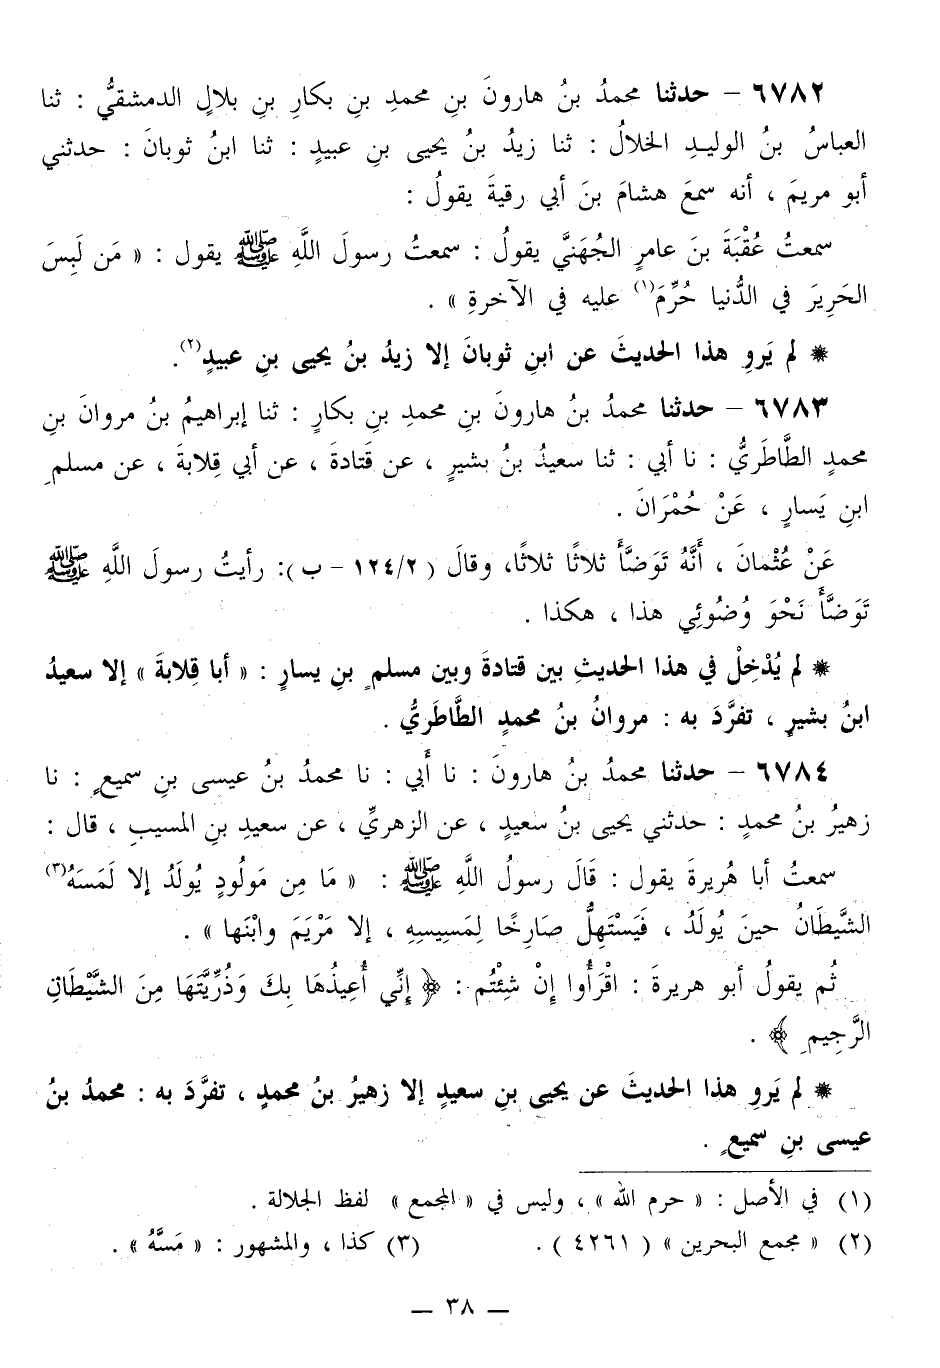 ٦٧٨٢ – حدثنا محمدُ بنُ هارونَ بنِ محمدِ بنِ بكارِ بنِ بلالٍ الدمشقيُّ : ثنا
العباسُ بنُ الوليدِ الخلالُ : ثنا زيدُ بنُ يحيى بنِ عبيدٍ : ثنا ابنُ ثوبانَ : حدثني
أبو مريمَ ، أنه سمعَ هشامَ بنَ أبي رقيةَ يقولُ :
سمعتُ عُقْبَةَ بنَ عامرٍ الجُهَنَّي يقولُ : سمعتُ رسولَ اللَّهِ ﷺ يقول : « مَن لَبِسَ
الحَرِيرَ في الدُّنيا حُرِّمَ(١) عليه في الآخرةِ » .
* لم يَروِ هذا الحديثَ عن ابنِ ثوبانَ إلا زيدُ بنُ يحيى بنِ عبيدٍ(٢).
٦٧٨٣ – حدثنا محمدُ بنُ هارونَ بنِ محمدِ بنِ بكارٍ : ثنا إبراهيمُ بنُ مروانَ بنِ
محمدٍ الطَّاطَريُّ : نا أبي : ثنا سعيدُ بنُ بشيرٍ ، عن قَتادةَ ، عن أبي قِلابةَ ، عن مسلمِ
ابنِ يَسارٍ ، عَنْ حُمْرَانَ .
عَنْ عُثْمانَ ، أَنَّهُ تَوَضَّأَ ثلاثًا ثلاثًا، وقالَ ( ١٢٤/٢ – ب ): رأيتُ رسولَ اللَّهِ ﷺ
تَوَضَّأَ نَحْوَ وُضُوئِي هذا ، هكذا .
* لم يُدْخِلْ في هذا الحديثِ بين قتادةَ وبين مسلمِ بنِ يسارٍ : « أبا قِلابةَ » إلا سعيدُ
ابنُ بشيرٍ ، تفرَّدَ به : مروانُ بنُ محمدٍ الطَّاطَريُّ .
٦٧٨٤ – حدثنا محمدُ بنُ هارونَ : نا أَبي : نا محمدُ بنُ عيسى بنِ سميعٍ : نا
زهيرُ بنُ محمدٍ : حدثني يحيى بنُ سعيدٍ ، عن الزهريِّ ، عن سعيدِ بنِ المسيبِ ، قال :
سمعتُ أبا هُريرةَ يقول : قَالَ رسولُ اللَّهِ ﷺ : « مَا مِن مَولُودٍ يُولَدُ إلا لَمَسَهُ(٣)
الشَّيطَانُ حينَ يُولَدُ ، فَيَسْتَهِلُّ صَارِخًا لِمَسِيسِهِ ، إلا مَرْيَمَ وابْنَها » .
ثُم يقولُ أبو هريرةَ : اقْرَأُوا إِنْ شِئْتُم : ﴿ إِنِّي أُعِيذُهَا بِكَ وَذُرِّيَّتَهَا مِنَ الشَّيْطَانِ
الرَّجِيمِ ﴾ .
* لم يَروِ هذا الحديثَ عن يحيى بنِ سعيدٍ إلا زهيرُ بنُ محمدٍ ، تفرَّدَ به : محمدُ بنُ
عيسى بنِ سميعٍ .
(١) في الأصل : « حرم الله » ، وليس في « المجمع » لفظ الجلالة .
(٢) « مجمع البحرين » ( ٤٢٦١ ) . (٣) كذا ، والمشهور : « مَسَّهُ » .
— ٣٨ —